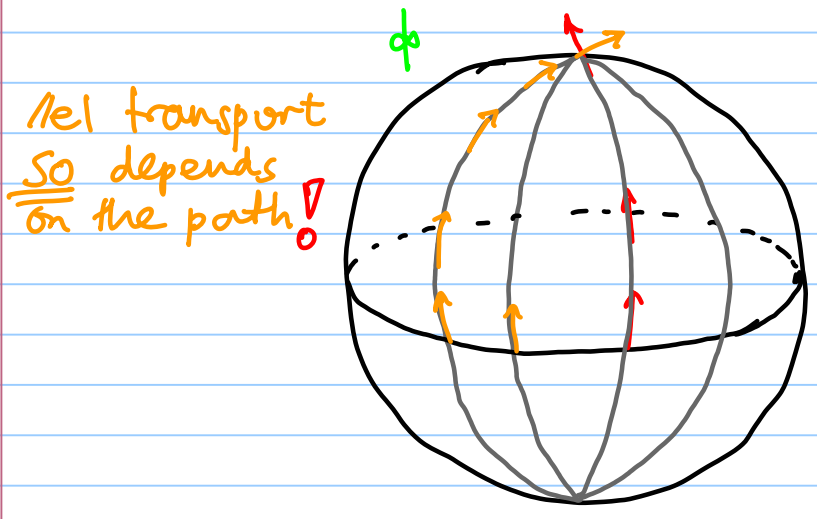 //el transport
so depends
on the path!